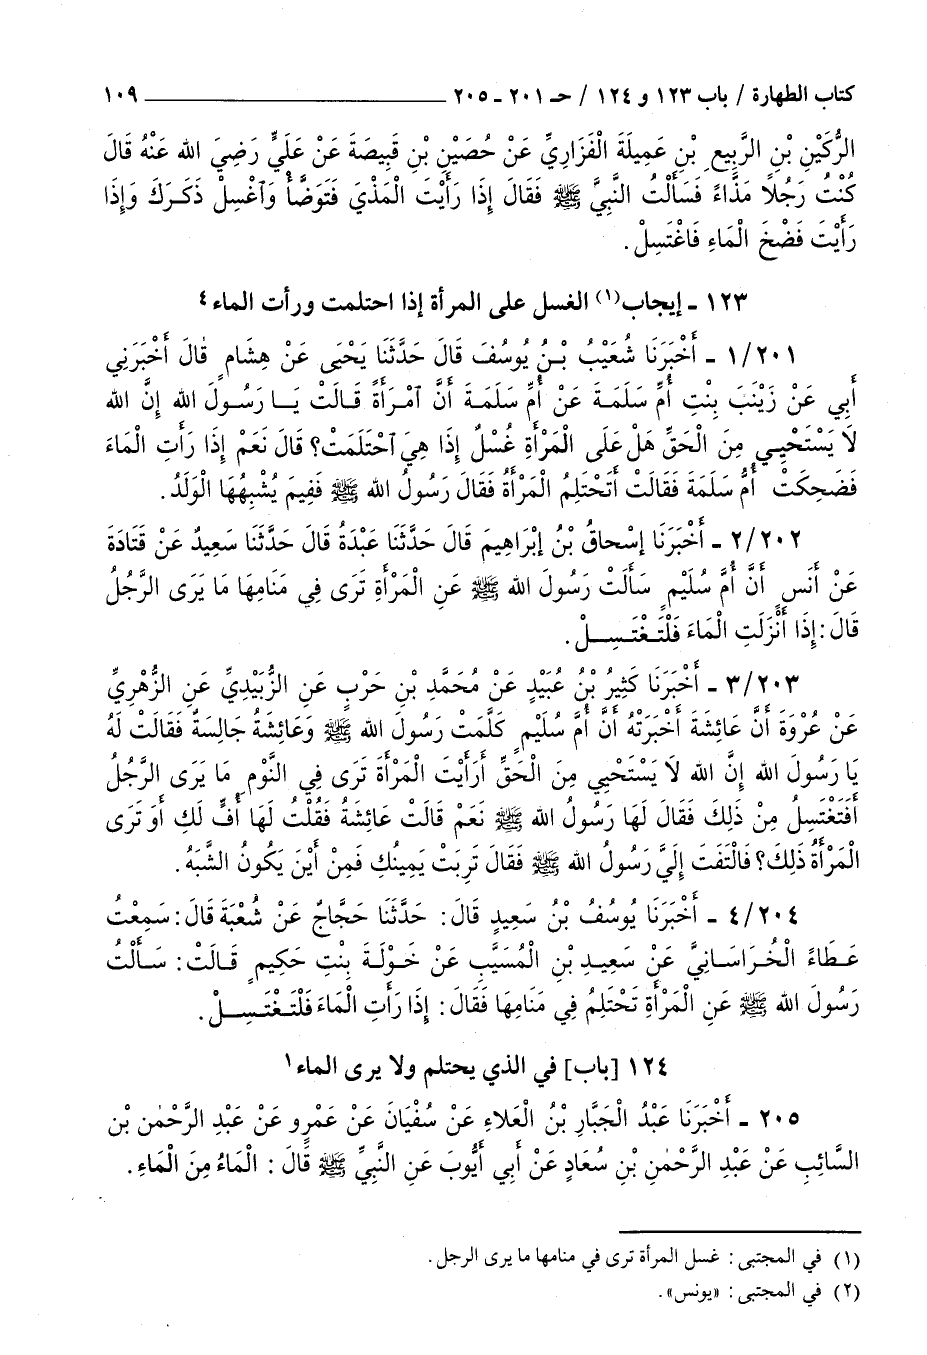 كتاب الطهارة / باب ١٢٣ و ١٢٤ / حـ ٢٠١ ـ ٢٠٥ ١٠٩
الرُّكَيْنِ بْنِ الرَّبِيعِ بْنِ عَمِيلَةَ الْفَزَارِيِّ عَنْ حُصَيْنِ بْنِ قَبِيصَةَ عَنْ عَلَيٍّ رَضِيَ الله عَنْهُ قَالَ
كُنْتُ رَجُلاً مَذَّاءً فَسَأَلْتُ النَّبِيَّ ﷺ فَقَالَ إِذَا رَأَيْتَ الْمَذْيَ فَتَوَضَّأْ وَٱغْسِلْ ذَكَرَكَ وَإِذَا
رَأَيْتَ فَضْخَ الْمَاءِ فَاغْتَسِلْ.
١٢٣ ـ إيجاب(١) الغسل على المرأة إذا احتلمت ورأت الماء ٤
١/٢٠١ ـ أَخْبَرَنَا شُعَيْبُ بْنُ يُوسُفَ قَالَ حَدَّثَنَا يَحْيَى عَنْ هِشَامٍ قَالَ أَخْبَرَنِي
أَبِي عَنْ زَيْنَبَ بِنْتِ أُمِّ سَلَمَةَ عَنْ أُمِّ سَلَمَةَ أَنَّ ٱمْرَأَةً قَالَتْ يَا رَسُولَ الله إِنَّ الله
لاَ يَسْتَحْيِي مِنَ الْحَقِّ هَلْ عَلَى الْمَرْأَةِ غُسْلٌ إِذَا هِيَ ٱحْتَلَمَتْ؟ قَالَ نَعَمْ إِذَا رَأَتِ الْمَاءَ
فَضَحِكَتْ أُمُّ سَلَمَةَ فَقَالَتْ أَتَحْتَلِمُ الْمَرْأَةُ فَقَالَ رَسُولُ الله ﷺ فَفِيمَ يُشْبِهُهَا الْوَلَدُ.
٢/٢٠٢ ـ أَخْبَرَنَا إِسْحاقُ بْنُ إِبْرَاهِيمَ قَالَ حَدَّثَنَا عَبْدَةُ قَالَ حَدَّثَنَا سَعِيدٌ عَنْ قَتَادَةَ
عَنْ أَنَسٍ أَنَّ أُمَّ سُلَيْمٍ سَأَلَتْ رَسُولَ الله ﷺ عَنِ الْمَرْأَةِ تَرَى فِي مَنَامِهَا مَا يَرَى الرَّجُلُ
قَالَ: إِذَا أَنْزَلَتِ الْمَاءَ فَلْتَغْتَسِلْ.
٣/٢٠٣ ـ أَخْبَرَنَا كَثِيرُ بْنُ عُبَيْدٍ عَنْ مُحَمَّدِ بْنِ حَرْبٍ عَنِ الزُّبَيْدِيِّ عَنِ الزُّهْرِيِّ
عَنْ عُرْوَةَ أَنَّ عَائِشَةَ أَخْبَرَتْهُ أَنَّ أُمَّ سُلَيْمٍ كَلَّمَتْ رَسُولَ الله ﷺ وَعَائِشَةُ جَالِسَةٌ فَقَالَتْ لَهُ
يَا رَسُولَ الله إِنَّ الله لاَ يَسْتَحْيِي مِنَ الْحَقِّ أَرَأَيْتَ الْمَرْأَةَ تَرَى فِي النَّوْمِ مَا يَرَى الرَّجُلُ
أَفَتَغْتَسِلُ مِنْ ذَلِكَ فَقَالَ لَهَا رَسُولُ الله ﷺ نَعَمْ قَالَتْ عَائِشَةُ فَقُلْتُ لَهَا أُفٍّ لَكِ أَوَ تَرَى
الْمَرْأَةُ ذَلِكَ؟ فَالْتَفَتَ إِلَيَّ رَسُولُ الله ﷺ فَقَالَ تَرِبَتْ يَمِينُكِ فَمِنْ أَيْنَ يَكُونُ الشَّبَهُ.
٤/٢٠٤ ـ أَخْبَرَنَا يُوسُفُ بْنُ سَعِيدٍ قَالَ: حَدَّثَنَا حَجَّاجٌ عَنْ شُعْبَةَ قَالَ: سَمِعْتُ
عَطَاءً الْخُرَاسَانِيَّ عَنْ سَعِيدِ بْنِ الْمُسَيَّبِ عَنْ خَوْلَةَ بِنْتِ حَكِيمٍ قَالَتْ: سَأَلْتُ
رَسُولَ الله ﷺ عَنِ الْمَرْأَةِ تَحْتَلِمُ فِي مَنَامِهَا فَقَالَ: إِذَا رَأَتِ الْمَاءَ فَلْتَغْتَسِلْ.
١٢٤ [باب] في الذي يحتلم ولا يرى الماء ١
٢٠٥ ـ أَخْبَرَنَا عَبْدُ الْجَبَّارِ بْنُ الْعَلاءِ عَنْ سُفْيَانَ عَنْ عَمْرٍو عَنْ عَبْدِ الرَّحْمٰنِ بْنِ
السَّائِبِ عَنْ عَبْدِ الرَّحْمٰنِ بْنِ سُعَادٍ عَنْ أَبِي أَيُّوبَ عَنِ النَّبِيِّ ﷺ قَالَ: الْمَاءُ مِنَ الْمَاءِ.
(١) في المجتبى: غسل المرأة ترى في منامها ما يرى الرجل.
(٢) في المجتبى: «يونس».